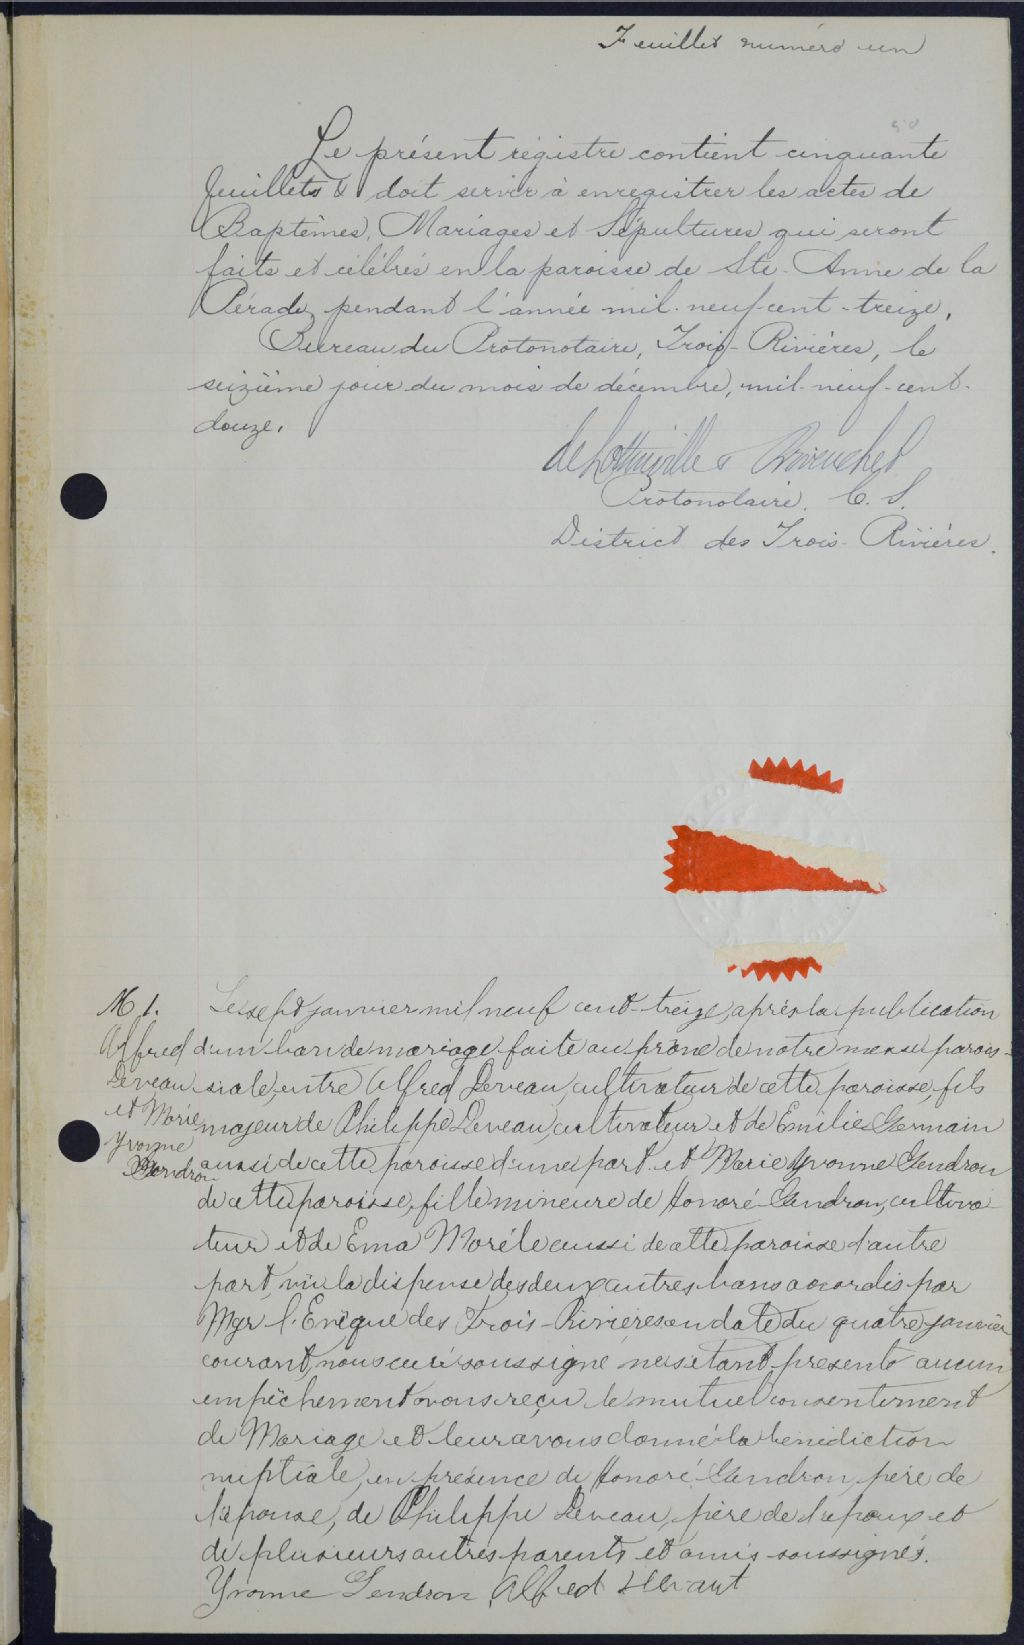 Feuillet numéro un
50
Le présent registre contient cinquante
feuillets & doit servir à enregistrer les actes de
Baptêmes, Mariages et Sépultures qui seront
faits et célébrés en la paroisse de Ste-Anne de la
Pérade, pendant l'année mil-neuf-cent-treize.
Bureau du Protonotaire, Trois-Rivières, le
seizième jour du mois de décembre, mil-neuf-cent-
douze.
Protonotaire. C. S.
District des Trois-Rivières.
M 1.
Alfred
Deveau
et Marie
Yvonne
Gendron
Le sept janvier mil neuf cent-treize, après la publication
d'un ban de mariage faite au prône de notre messe parois-
siale, entre Alfred Deveau, cultivateur de cette paroisse, fils
majeur de Philippe Deveau, cultivateur et de Emilie Germain
aussi de cette paroisse d'une part et Marie Yvonne Gendron
de cette paroisse, fille mineure de Honoré Gendron, cultiva-
teur et de Ema Moréle aussi de cette paroisse d'autre
part, vu la dispense des deux autres bans accordés par
Mgr l'Evêque des Trois-Rivières en date du quatre janvier
courant, nous curé soussigné ne s'étant présenté aucun
empêchement avons reçu le mutuel consentement
de Mariage et leur avons donné la bénédiction
nuptiale, en présence de Honoré Gendron, père de
l'épouse, de Philippe Deveau, père de l'époux et
de plusieurs autres parents et amis soussignés.
Yvonne Gendron, Alfred